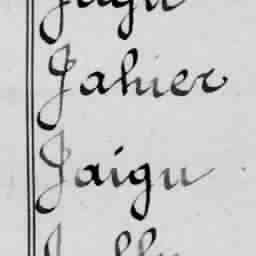 Jahier
Jaigu